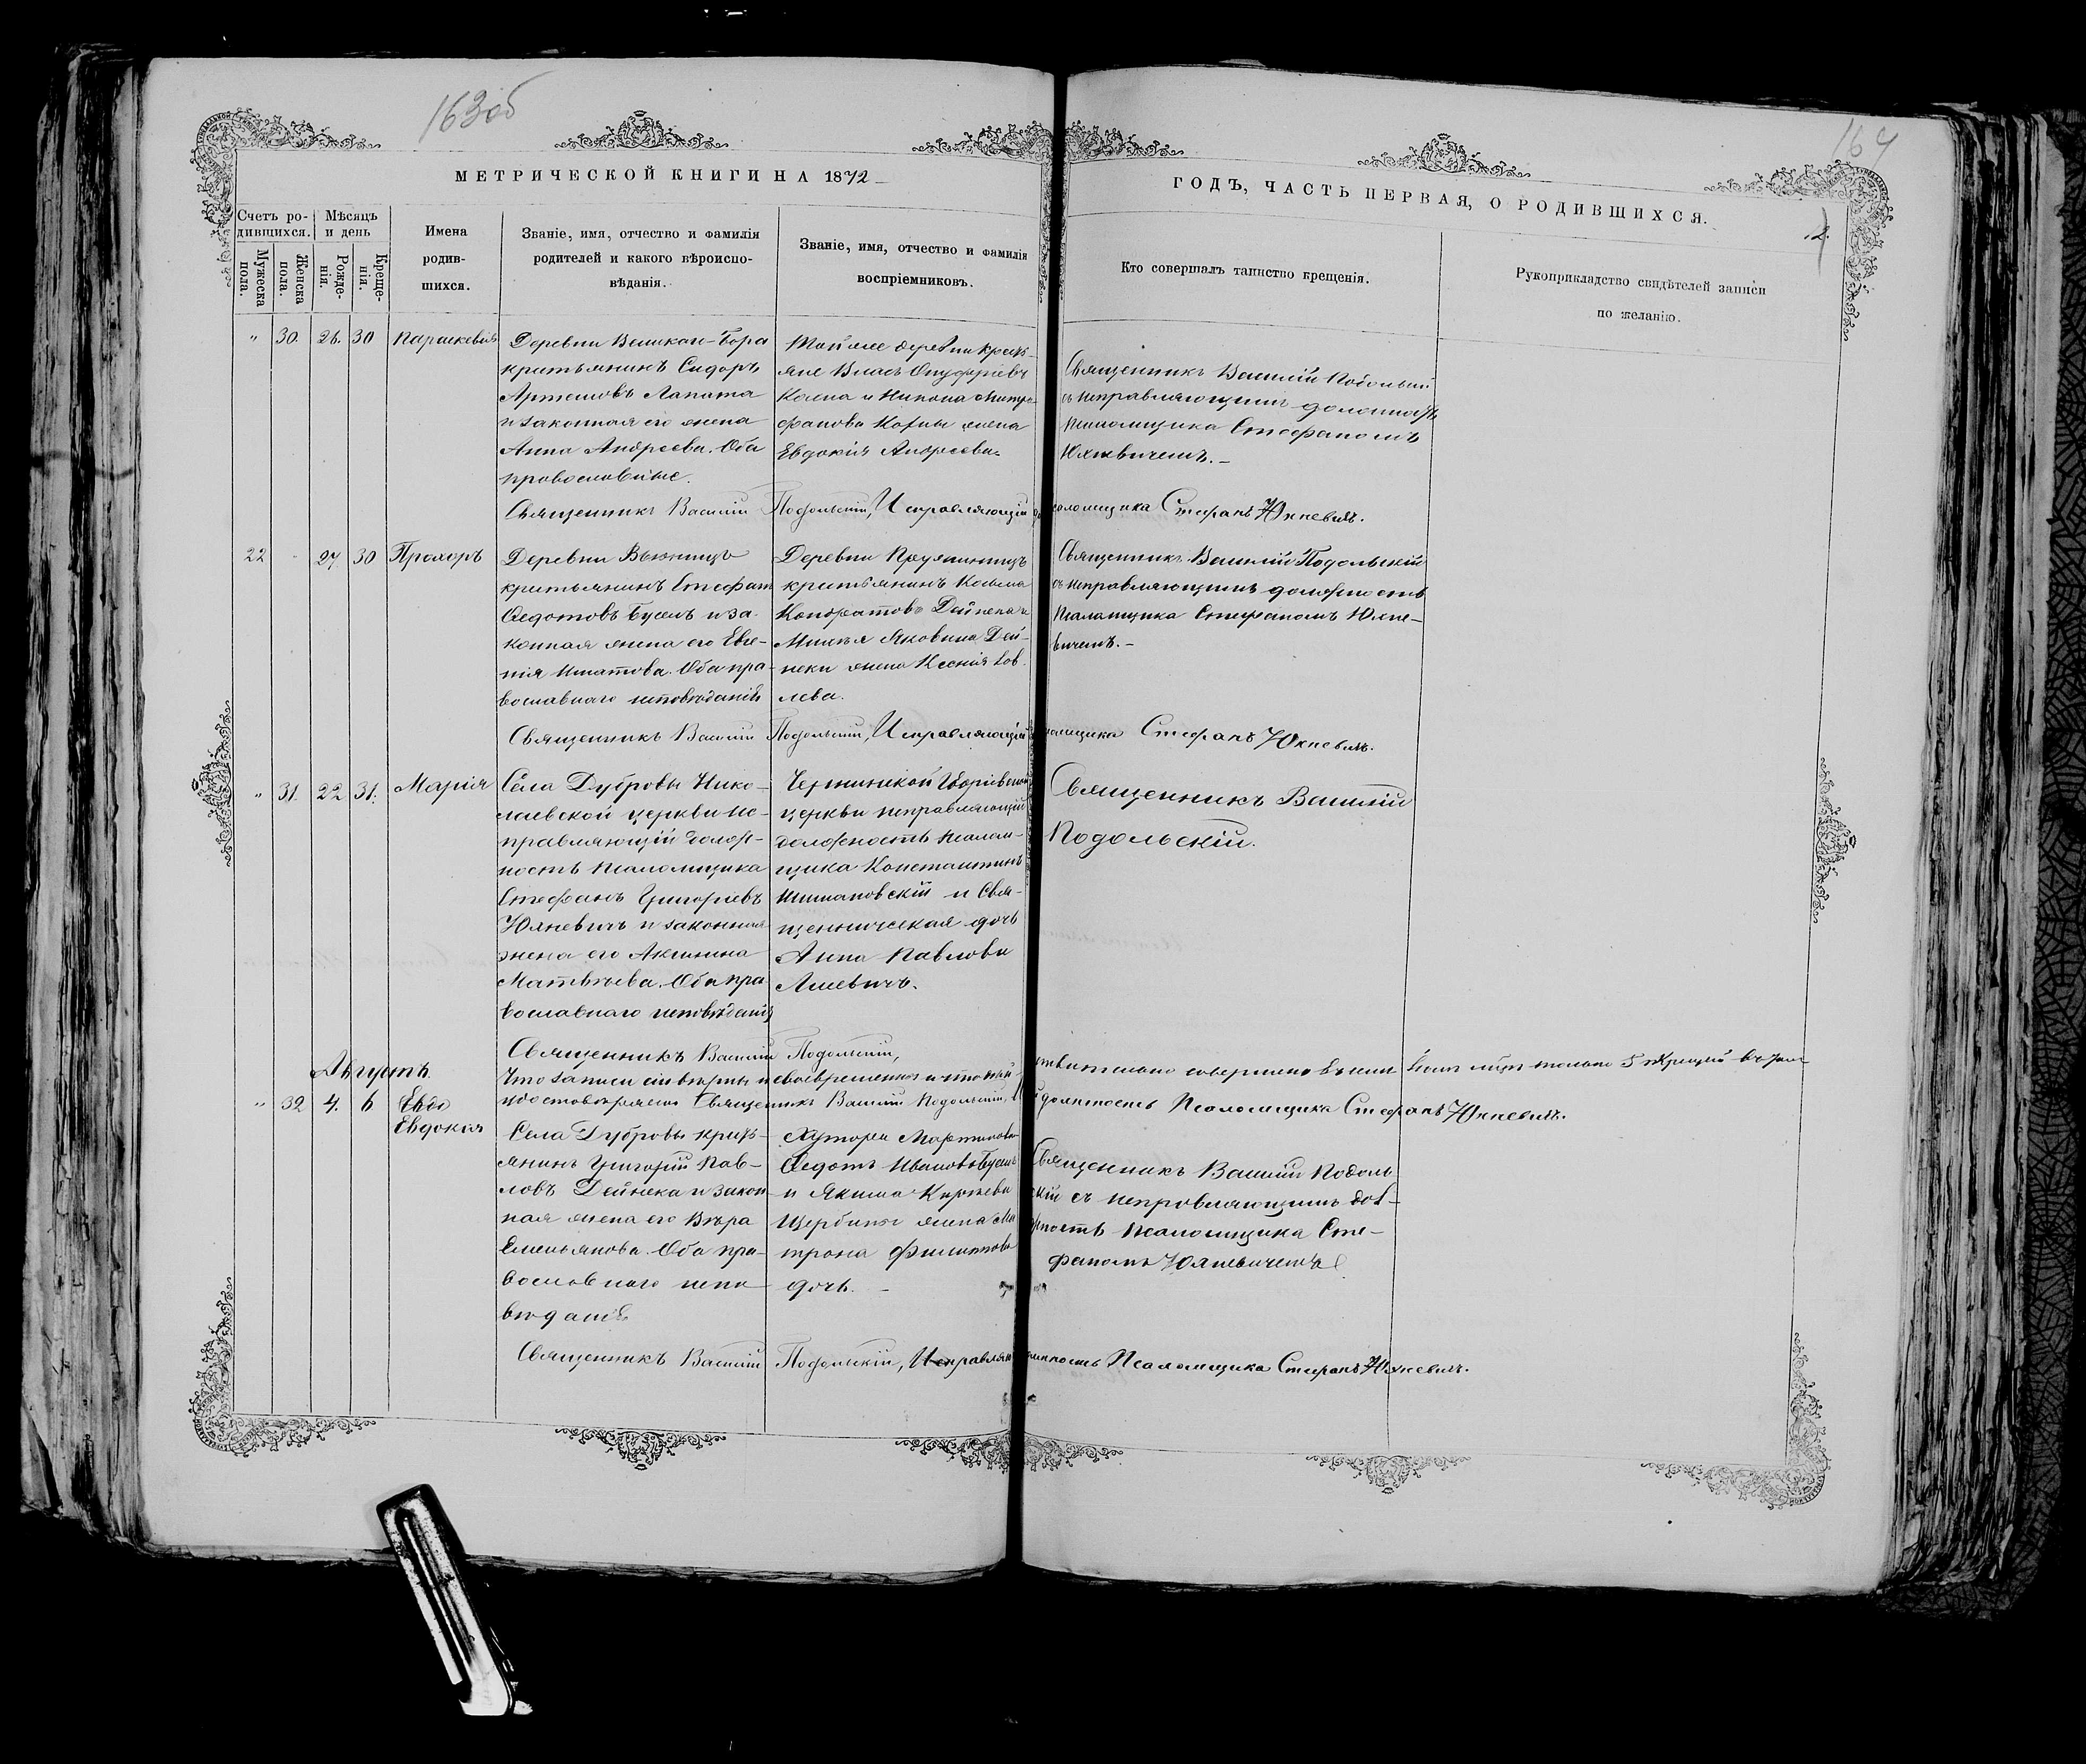 163об
164
МЕТРИЧЕСКОЙ КНИГИ НА 1872
ГОДЪ, ЧАСТЬ ПЕРВАЯ, О РОДИВШИХСЯ.
Счетъ ро-
дившихся.
Мѣсяцъ
и день
Мужеска
пола.
Женска
пола.
Рожде-
нія.
Креще-
нія.
Имена
родив-
шихся.
Званіе, имя, отчество и фамилія
родителей и какого вѣроиспо-
вѣданія.
Званіе, имя, отчество и фамилія
воспріемниковъ.
Кто совершалъ таинство крещенія.
Рукоприкладство свидѣтелей записи
по желанію.
" 30. 26. 30 Параскевія
Деревни Бора
крестьянинъ Сидоръ
Артемовъ Лапата
и законная его жена
Анна Андреева. Оба
православные.
Той же деревни крест-
яне Власъ Онуфріевъ
и Никона Митро-
фанова жена
Евдокія Андреева.
Священникъ Василій Подольскій
съ исправляющимъ должность
Псаломщика Стефаномъ
Юхневичемъ.
Священникъ Василій Подольскій, Исправляющій Псаломщика Стефанъ Юхневичъ.
22 27 30 Прохоръ
Деревни
крестьянинъ Стефанъ
Ѳедотовъ Буселъ и за-
конная жена его Евге-
нія Игнатова. Оба пра-
вославнаго исповѣданія
Деревни
крестьянинъ Козьма
Кондратовъ Дейнека и
Яковина Дей-
неки жена Ксенія Іов-
лева.
Священникъ Василій Подольскій
съ исправляющимъ должность
Псаломщика Стефаномъ Юхне-
вичемъ.
Священникъ Василій Подольскій, Исправляющій Псаломщика Стефанъ Юхневичъ.
" 31. 22 31. Марія
Села Дубровы Нико-
лаевской церкви ис-
правляющій долж-
ность Псаломщика
Стефанъ Григорьевъ
Юхневичъ и законная
жена его Акилина
Матвѣева. Оба пра-
вославнаго исповѣданія
Георгіевской
церкви исправляющій
должность Псалом-
щика Константинъ
и Свя-
щенническая дочь
Анна Павлова
Священникъ Василій
Подольскій.
Священникъ Василій Подольскій,
Августъ.
Что записи сіи вѣрны и своевременны и что
удостовѣряемъ Священникъ Василій Подольскій, должность Псаломщика Стефанъ Юхневичъ.
" 32 4. 6 Евдо
Евдокія
Села Дубровы крест-
янинъ Григорій Пав-
ловъ Дейнека и закон-
ная жена его Вѣра
Емельянова. Оба пра-
вославнаго испо-
вѣданія
Хутора Мартинова
Ѳедотъ Ивановъ Буселъ
и Якима
Щербины жена Ма-
трона Филиппова
дочь.
Священникъ Василій Подоль-
скій съ исправляющимъ дол-
жность Псаломщика Сте-
фаномъ Юхневичемъ
Священникъ Василій Подольскій, Исправляющій должность Псаломщика Стефанъ Юхневичъ.